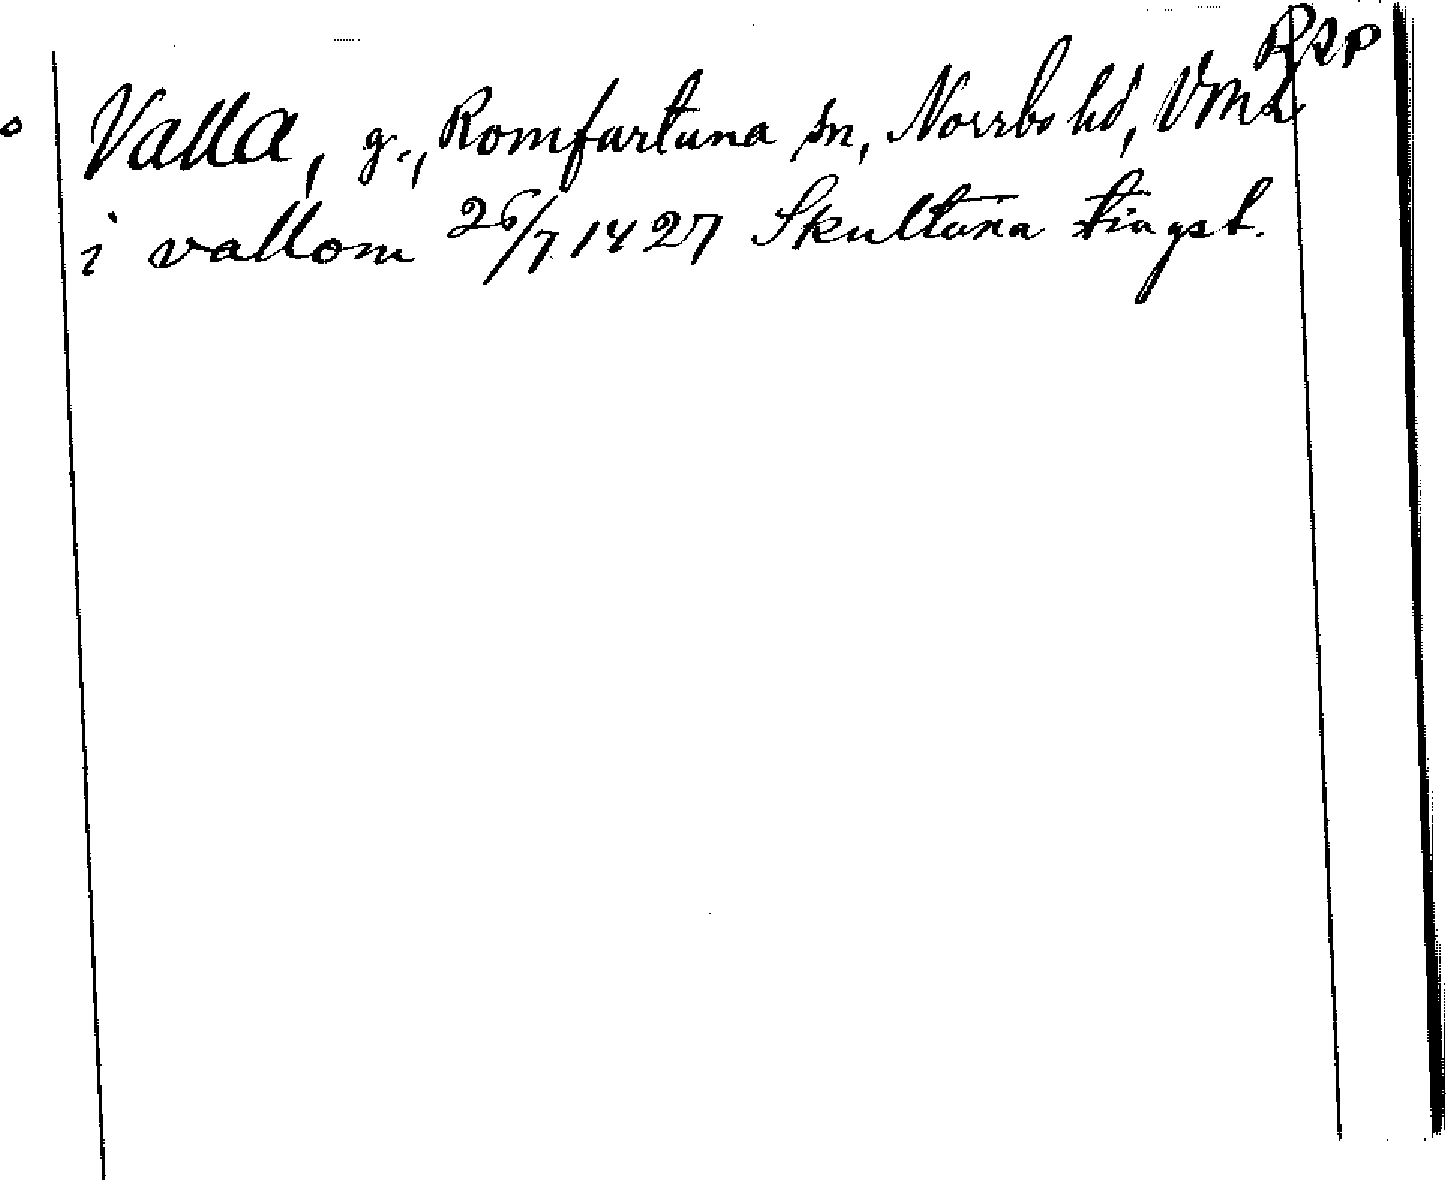 RAp
Valla, g., Romfartuna sn, Norrbo hd, Vml
i vallom 26/7 1427 Skultuna tingst.